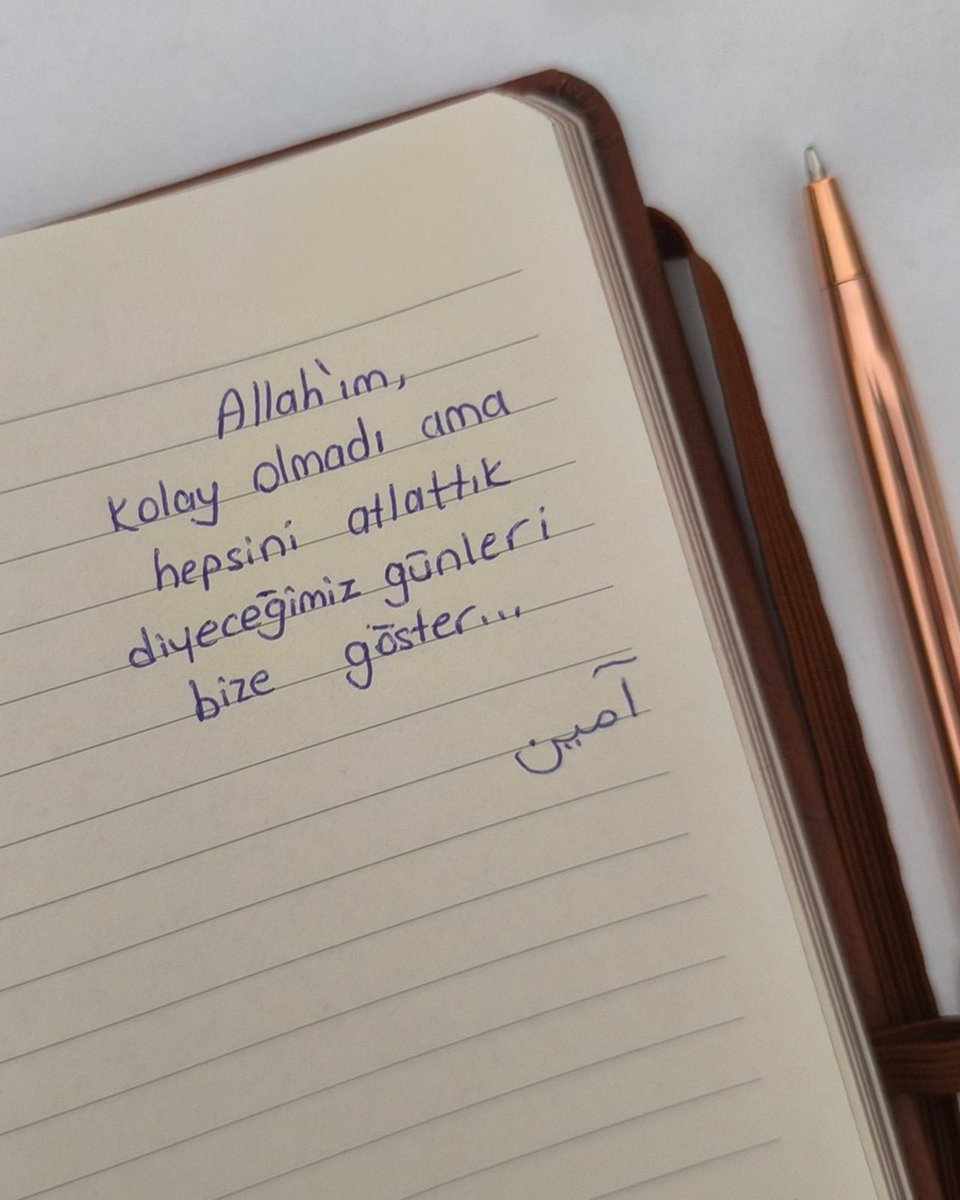 Allah'ım,
kolay olmadı ama
hepsini atlattık
diyeceğimiz günleri
bize göster...
آمين